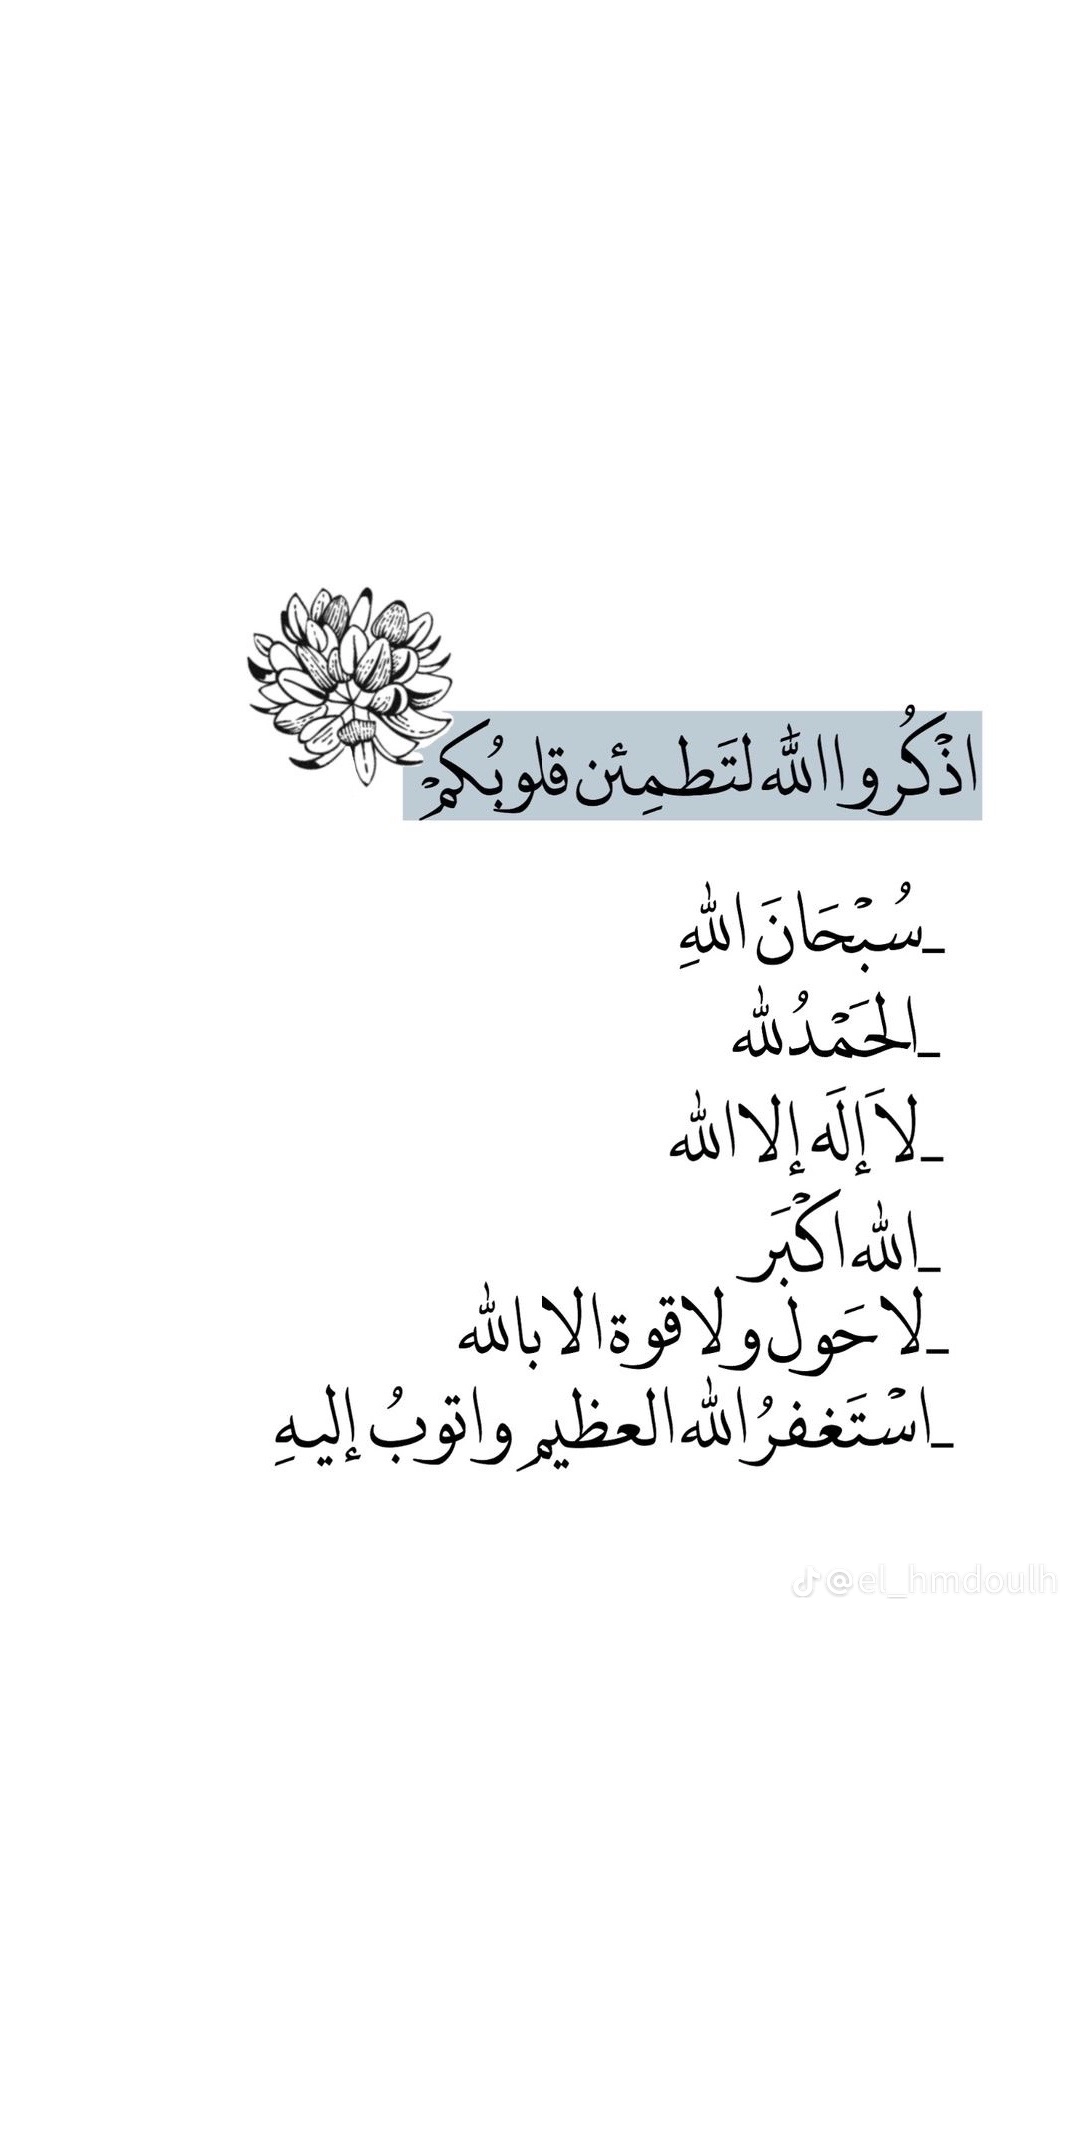 اذْكُروا الله لتَطمِئن قلوبُكمْ
_سُبْحَانَ اللهِ
_الحَمْدُ لله
_لاَ إلَه إلا الله
_الله اكْبَر
_لا حَول ولا قوة الا بالله
_اسْتَغفرُ الله العظيم واتوبُ إليهِ
@el_hmdoulh